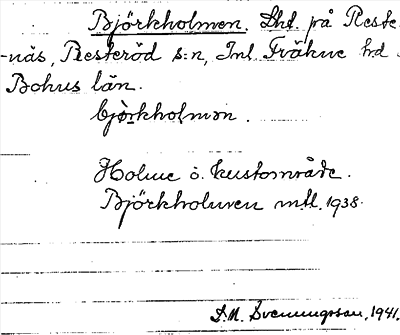 Björkholmen. Lht på Reste
-näs, Resteröd s:n, Inl. Fräkne hd.
Bohus län.
bjö̀rkholmən.
Holme o. kustområde.
Björkholmen mtl. 1938.
S.M. Svenungsson, 1941.